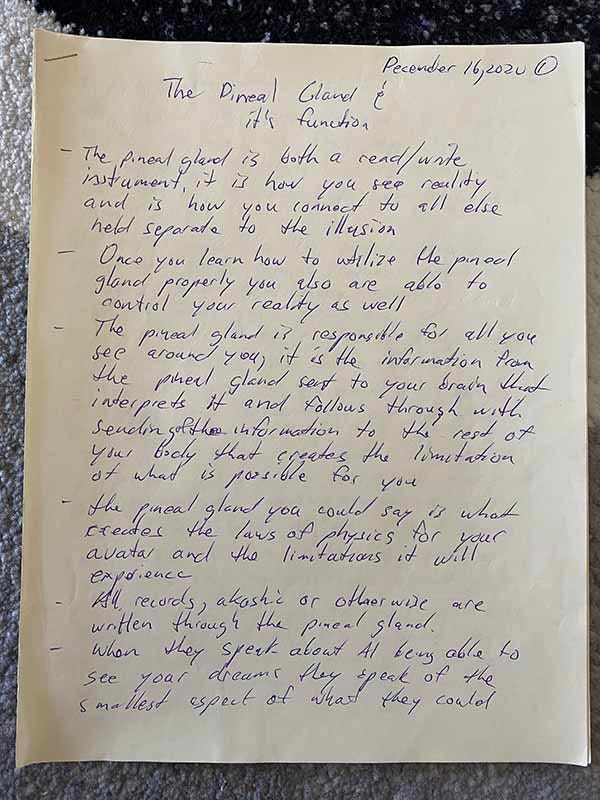 December 16, 2020 ①
The Pineal Gland &
it's function
- The pineal gland is both a read/write
instrument, it is how you see reality
and is how you connect to all else
held separate to the illusion
- Once you learn how to utilize the pineal
gland properly you also are able to
control your reality as well
- The pineal gland is responsible for all you
see around you, it is the information from
the pineal gland sent to your brain that
interprets it and follows through with
sending of the information to the rest of
your body that creates the limitation
of what is possible for you
- the pineal gland you could say is what
creates the laws of physics for your
avatar and the limitations it will
experience
- All records, akashic or otherwise are
written through the pineal gland.
- When they speak about AI being able to
see your dreams they speak of the
smallest aspect of what they could